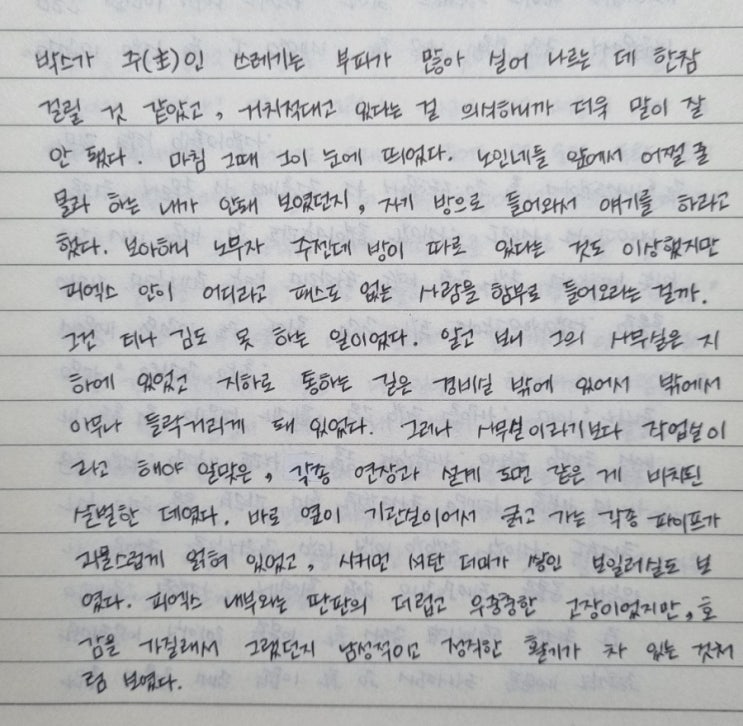 박스가 주(主)인 쓰레기는 부피가 많아 실어 나르는 데 한참
걸릴 것 같았고, 거치적대고 있다는 걸 의식하니까 더욱 말이 잘
안 됐다. 마침 그때 그이 눈에 띄었다. 노인네들 앞에서 어쩔 줄
몰라 하는 내가 안돼 보였던지, 자기 방으로 들어와서 얘기를 하라고
했다. 보아하니 노무자 주젠데 방이 따로 있다는 것도 이상했지만
피엑스 안이 어디라고 패스도 없는 사람을 함부로 들어오라는 걸까.
그건 티나 김도 못 하는 일이었다. 알고 보니 그의 사무실은 지
하에 있었고 지하로 통하는 길은 경비실 밖에 있어서 밖에서
아무나 들락거리게 돼 있었다. 그러나 사무실이라기보다 작업실이
라고 해야 알맞은, 각종 연장과 설계 도면 같은 게 비치된
살벌한 데였다. 바로 옆이 기관실이어서 굵고 가는 각종 파이프가
괴물스럽게 얽혀 있었고, 시커먼 석탄 더미가 쌓인 보일러실도 보
였다. 피엑스 내부와는 딴판의 더럽고 우중충한 고장이었지만, 호
감을 가질래서 그랬던지 남성적이고 정직한 활기가 차 있는 것처
럼 보였다.